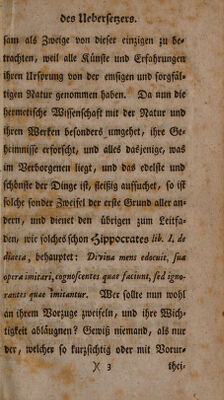 des Uebersetzers.
sam als Zweige von dieser einzigen zu be-
trachten, weil alle Künste und Erfahrungen
ihren Ursprung von der emsigen und sorgfäl-
tigen Natur genommen haben. Da nun die
hermetische Wissenschaft mit der Natur und
ihren Werken besonders umgehet, ihre Ge-
heimnisse erforscht, und alles dasjenige, was
im Verborgenen liegt, und das edelste und
schönste der Dinge ist, fleißig aufsuchet, so ist
solche sonder Zweifel der erste Grund aller an-
dern, und dienet den übrigen zum Leitfa-
den, wie solches schon Hippocrates lib. I. de
diaeta, behauptet: Divina mens edocuit, sua
opera imitari, cognoscentes quae faciunt, sed igno-
rantes quae imitantur. Wer sollte nun wohl
an ihrem Vorzuge zweifeln, und ihre Wich-
tigkeit abläugnen? Gewiß niemand, als nur
der, welcher so kurzsichtig oder mit Vorur-
)( 3 thei-